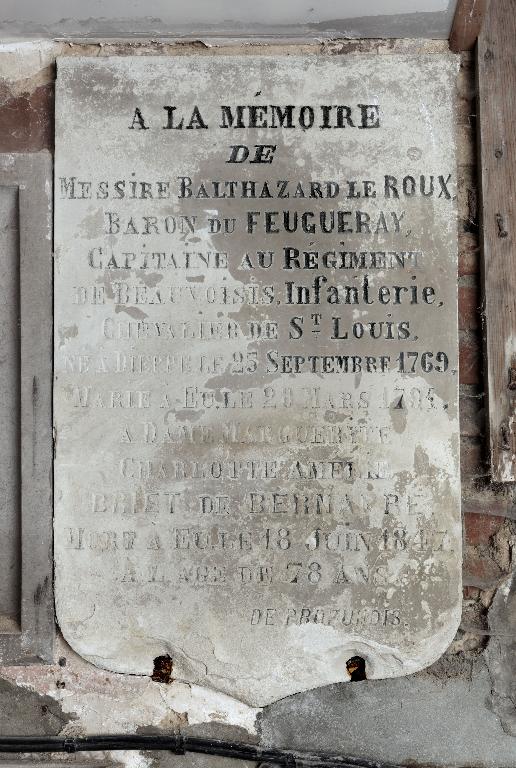 A LA MÉMOIRE
DE
MESSIRE BALTHAZARD LE ROUX,
BARON DU FEUGUERAY,
CAPITAINE AU RÉGIMENT
DE BEAUVOISIS, Infanterie,
CHEVALIER DE ST LOUIS.
NÉ A DIEPPE LE 25 SEPTEMBRE 1769,
MARIÉ A EU, LE 28 MARS
A DAME MARGUERITE
CHARLOTTE AMELIE
BRIET DE BERNAPRÉ
MORT A EU, LE 18 JUIN 1847.
A L'AGE DE 78 ANS.
DE PROFUNDIS.